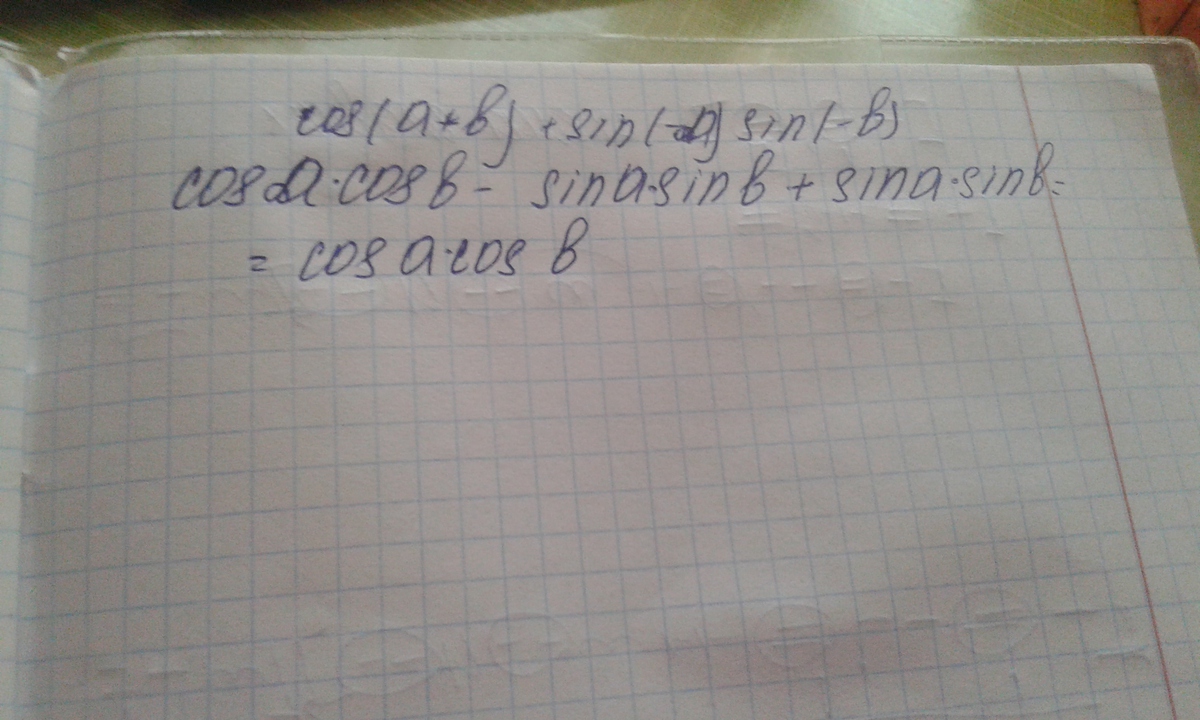 cos(a+b) + sin(-a) sin(-b)
cos a·cos b - sin a·sin b + sin a·sin b =
= cos a·cos b